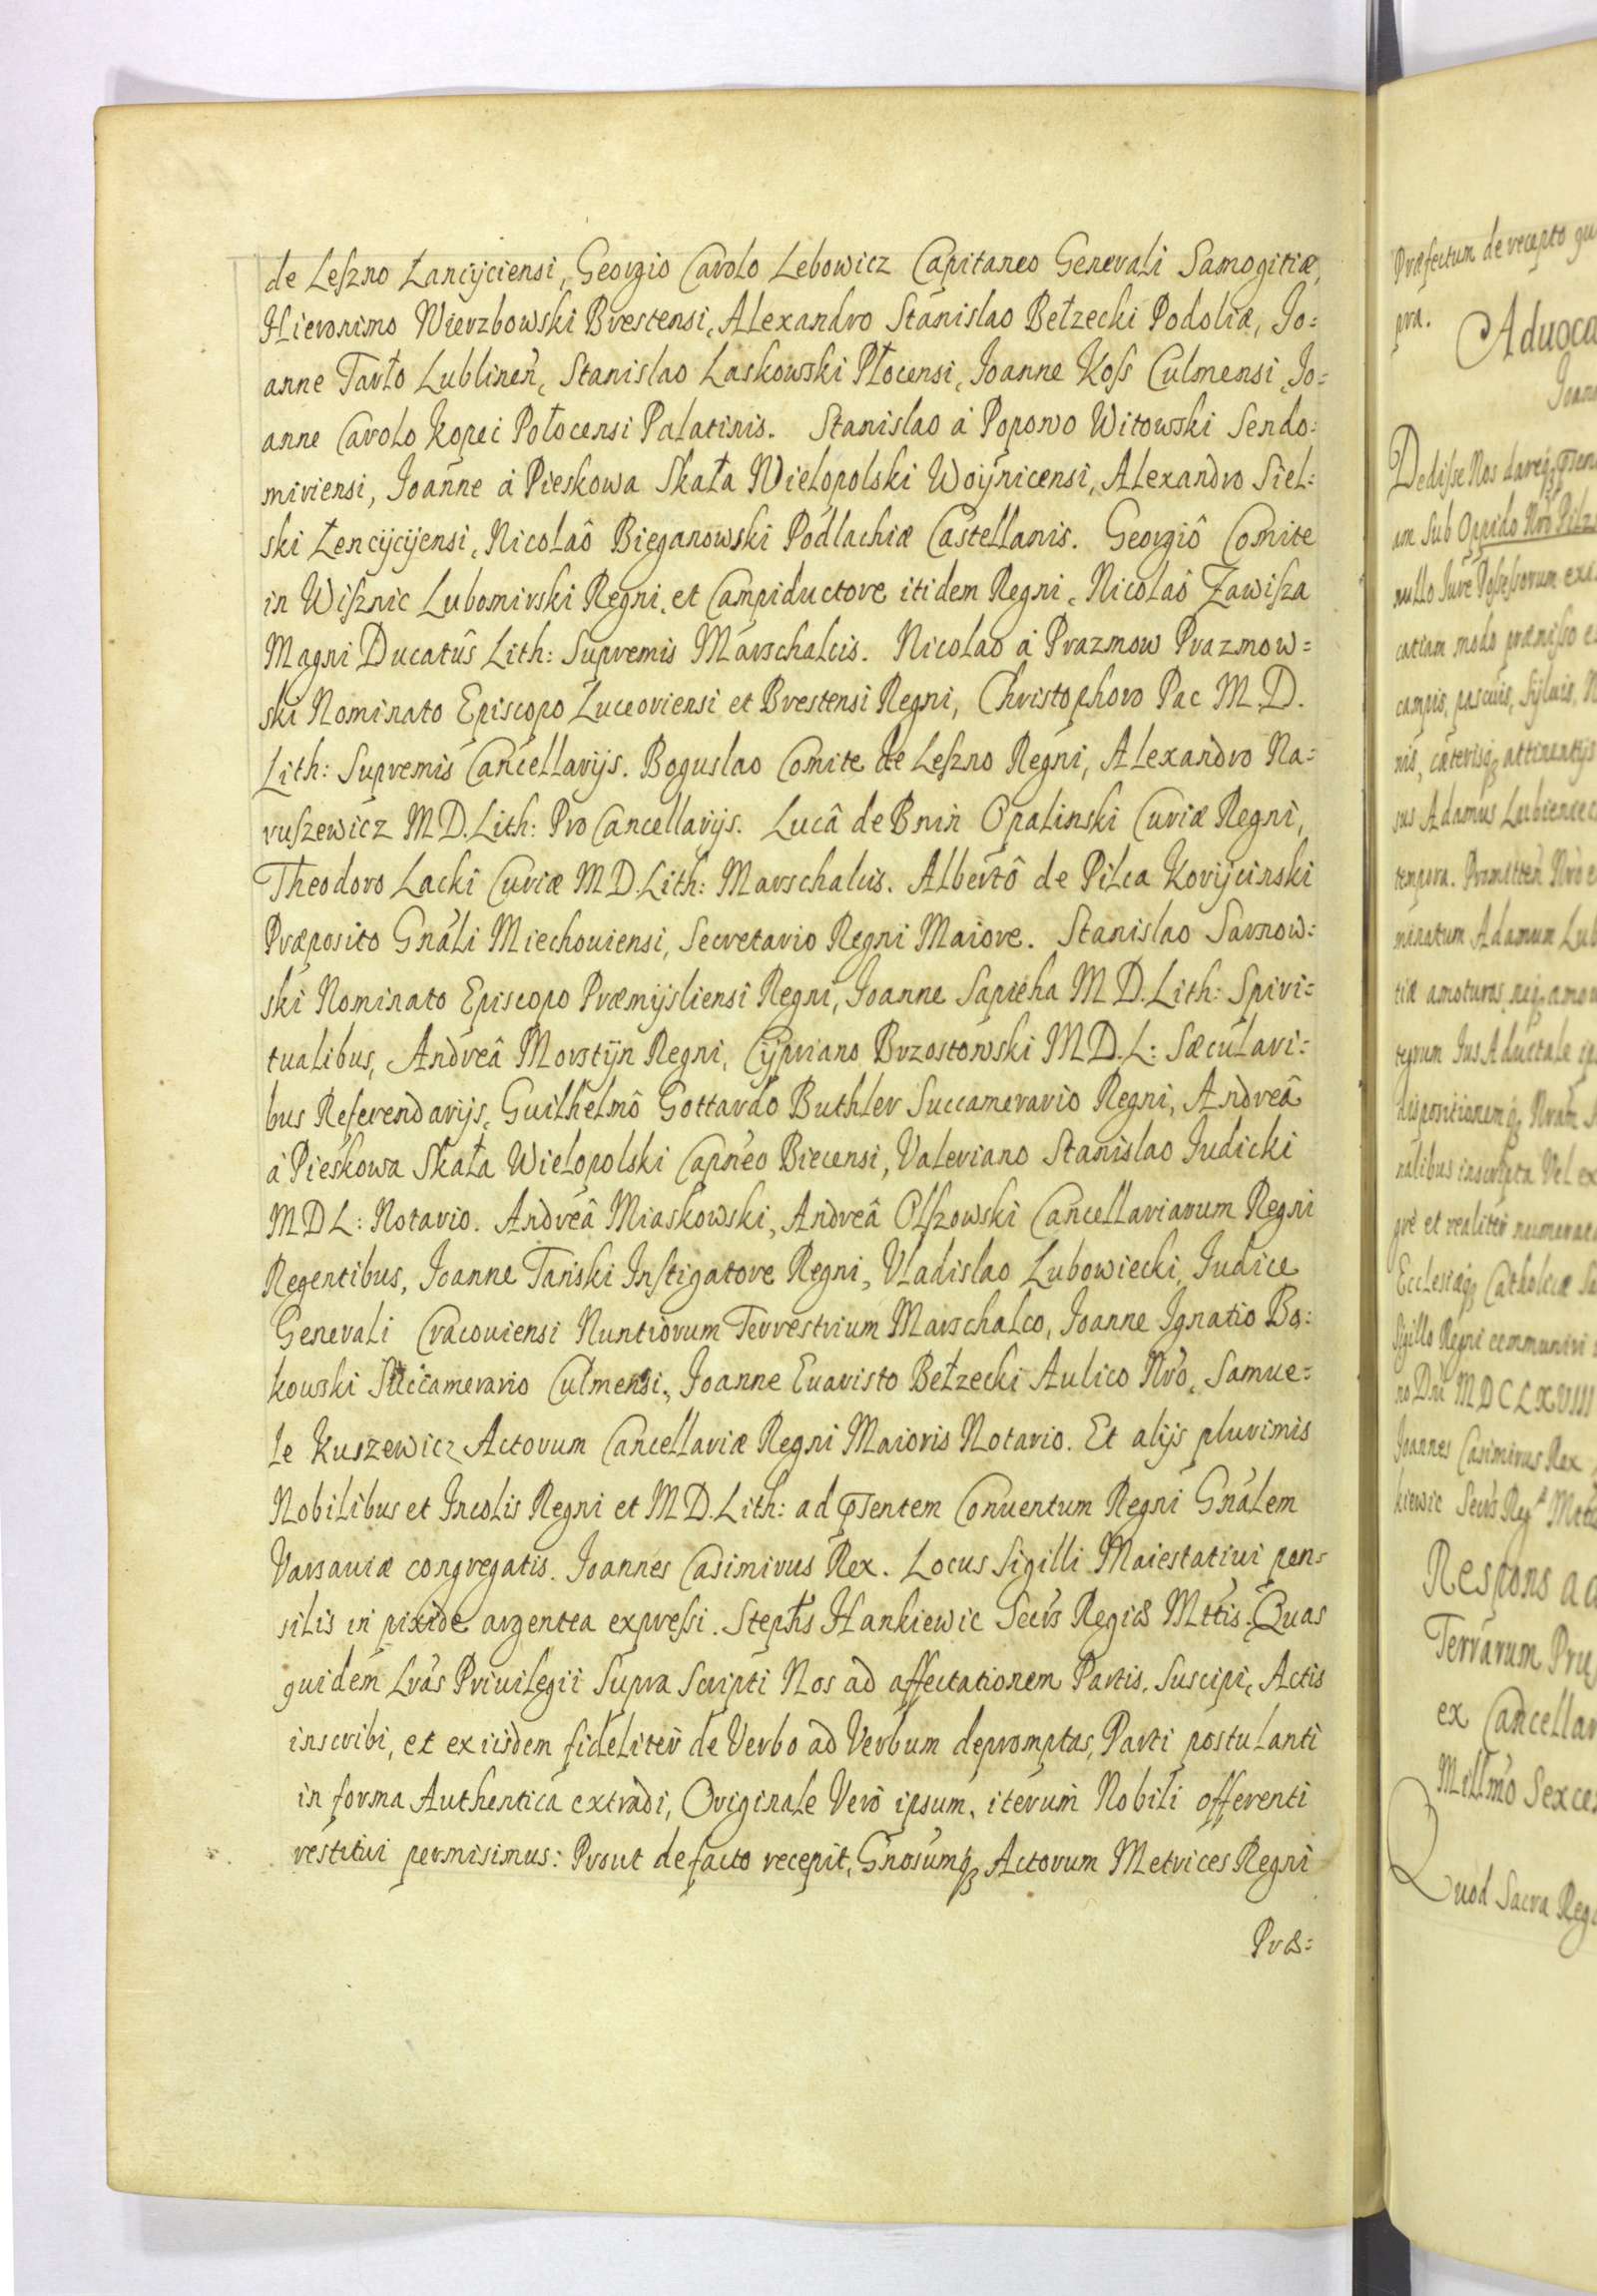 de Leſzno Lancÿciensi, Georgio Carolo Lebowicz Capitaneo Generali Samogitiæ,
Hieronimo Wierzbowski Brestensi, Alexandro Stanislao Bełzecki Podoliæ, Jo=
anne Tarło Lublineñ, Stanislao Laskowski Płocensi, Joanne Koſs Culmensi, Jo=
anne Carolo Kopeć Połocensi Palatinis. Stanislao à Popowo Witowski Sendo=
miriensi, Joanne à Pieskowa Skała Wielopolski Woÿnicensi, Alexandro Siel=
ski Łencÿcÿensi, Nicolaô Bieganowski Podlachiæ Castellanis. Georgiô Comite
in Wiſznic Lubomirski Regni, et Campiductore itidem Regni, Nicolaô Zawiſza
Magni Ducatûs Lith: Supremis Marschalcis. Nicolao à Prazmow Prazmow=
ski Nominato Episcopo Luceoriensi et Brestensi Regni, Christophoro Pac M.D.
Lith: Supremis Cancellarijs. Boguslao Comite de Leſzno Regni, Alexandro Na=
ruſzewicz M.D.Lith: Pro Cancellarijs. Lucâ de Bnin Opalinski Curiæ Regni,
Theodoro Lacki Curiæ M.D.Lith: Marschalcis. Albertô de Pilca Korÿcinski
Præposito Gnáli Miechouiensi, Secretario Regni Maiore. Stanislao Sarnow=
ski Nominato Episcopo Præmÿsliensi Regni, Joanne Sapieha M.D.Lith: Spiri=
tualibus, Andreâ Morstÿn Regni, Cÿpriano Brzostowski M.D.L: Sæculari=
bus Referendarijs, Guilhelmô Gottardo Buthler Succamerario Regni, Andreâ
à Pieskowa Skała Wielopolski Capneo Biecensi, Valeriano Stanislao Judicki
MDL: Notario. Andreâ Miaskowski, Andreâ Olſzowski Cancellariarum Regni
Regentibus, Joanne Tański Inſtigatore Regni, Vladislao Lubowiecki Judice
Generali Cracouiensi Nuntiorum Terrestrium Marschalco, Joanne Ignatio Bą=
kowski Succamerario Culmensi, Joanne Euaristo Bełzecki Aulico Nrô, Samue=
le Kuszewicz Actorum Cancellariæ Regni Maioris Notario. Et alijs plurimis
Nobilibus et Incolis Regni et M.D.Lith: ad pñsentem Conuentum Regni Gnálem
Varsauiæ congregatis. Joannes Casimirus Rex. Locus Sigilli Maiestatiui pen=
silis in pixide argentea expreſsi. Stephs Hankiewic Secrs Regiæ Mttis. Quas
quidem Lras Priuilegii Supra Scripti Nos ad affectationem Partis, Suscipi, Actis
inscribi, et ex iisdem fideliter de Verbo ad Verbum depromptas, Parti postulanti
in forma Authentica extradi, Originale Verò ipsum, iterum Nobili offerenti
restitui permisimus: Prout de facto recepit, Gnosumq̃ Actorum Metrices Regni
Præ=
Præfectum de recepto qu
pra.
Aduoca
Joann
am Sub Oppido Nro Pilz
nullo Jure Poſseſsorum exi
catiam modo præmiſso e
campis, pascuis, Sÿluis, N
nis, cæterisq̃ attinentijs
sus Adamus Lubieniec
minatum Adamum Lub
tiæ amoturos neq̃ amou
Ecclesiæq̃ Catholicæ Sa
Sigillo Regni communiri
no Dni MDCLXVIII
Joannes Casimirus Rex
kiewic Secrs Regæ Mtti
Respons ad
Terrarum Pruſ
ex Cancellar
Millmo Sexce
Quod Sacra Regi